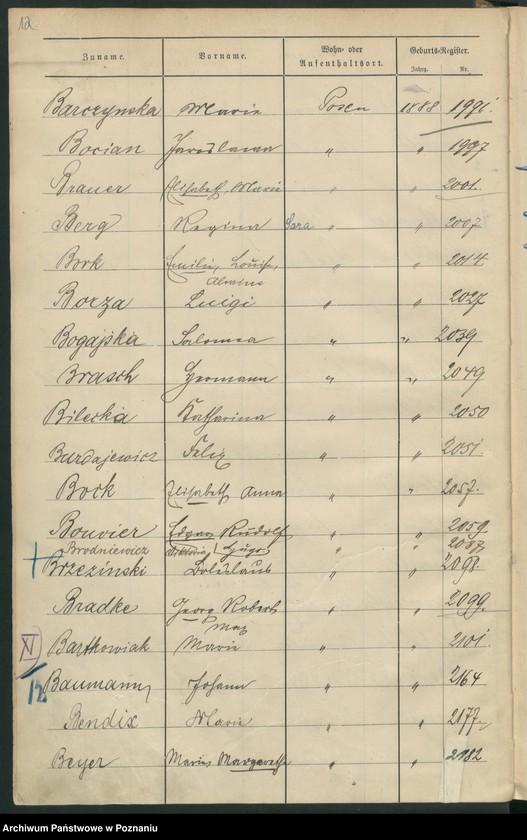 12
Zuname. Vorname. Wohn- oder Aufenthaltsort. Geburts-Register.
Jahrg. Nr.
Barczynska Marie Posen 1888 1991
Bocian Jaroslawa " " 1997
Brauer Elisabeth Marie " " 2001.
Berg Regina Sara " " 2007
Bork Emilie, Louise, " " 2014
Alwine
Borza Luigi " " 2027
Bogajska Salomea " " 2039
Brasch Hermann " " 2049
Bilecka Katharina " " 2050
Burdajewicz Felix " " 2051.
Bock Elisabeth Anna " " 2057.
Bouvier Edgar Rudolf " " 2059
Brodniewicz Hugo " " 2087
Brzezinski Boleslaus " " 2098.
Bradke Georg Robert " " 2099
Max
XI Bartkowiak Marie " " 2101.
12 Baumann Johann " " 2164
Bendix Marie " " 2177
Beyer Marie Margarethe " " 2182
Archiwum Państwowe w Poznaniu